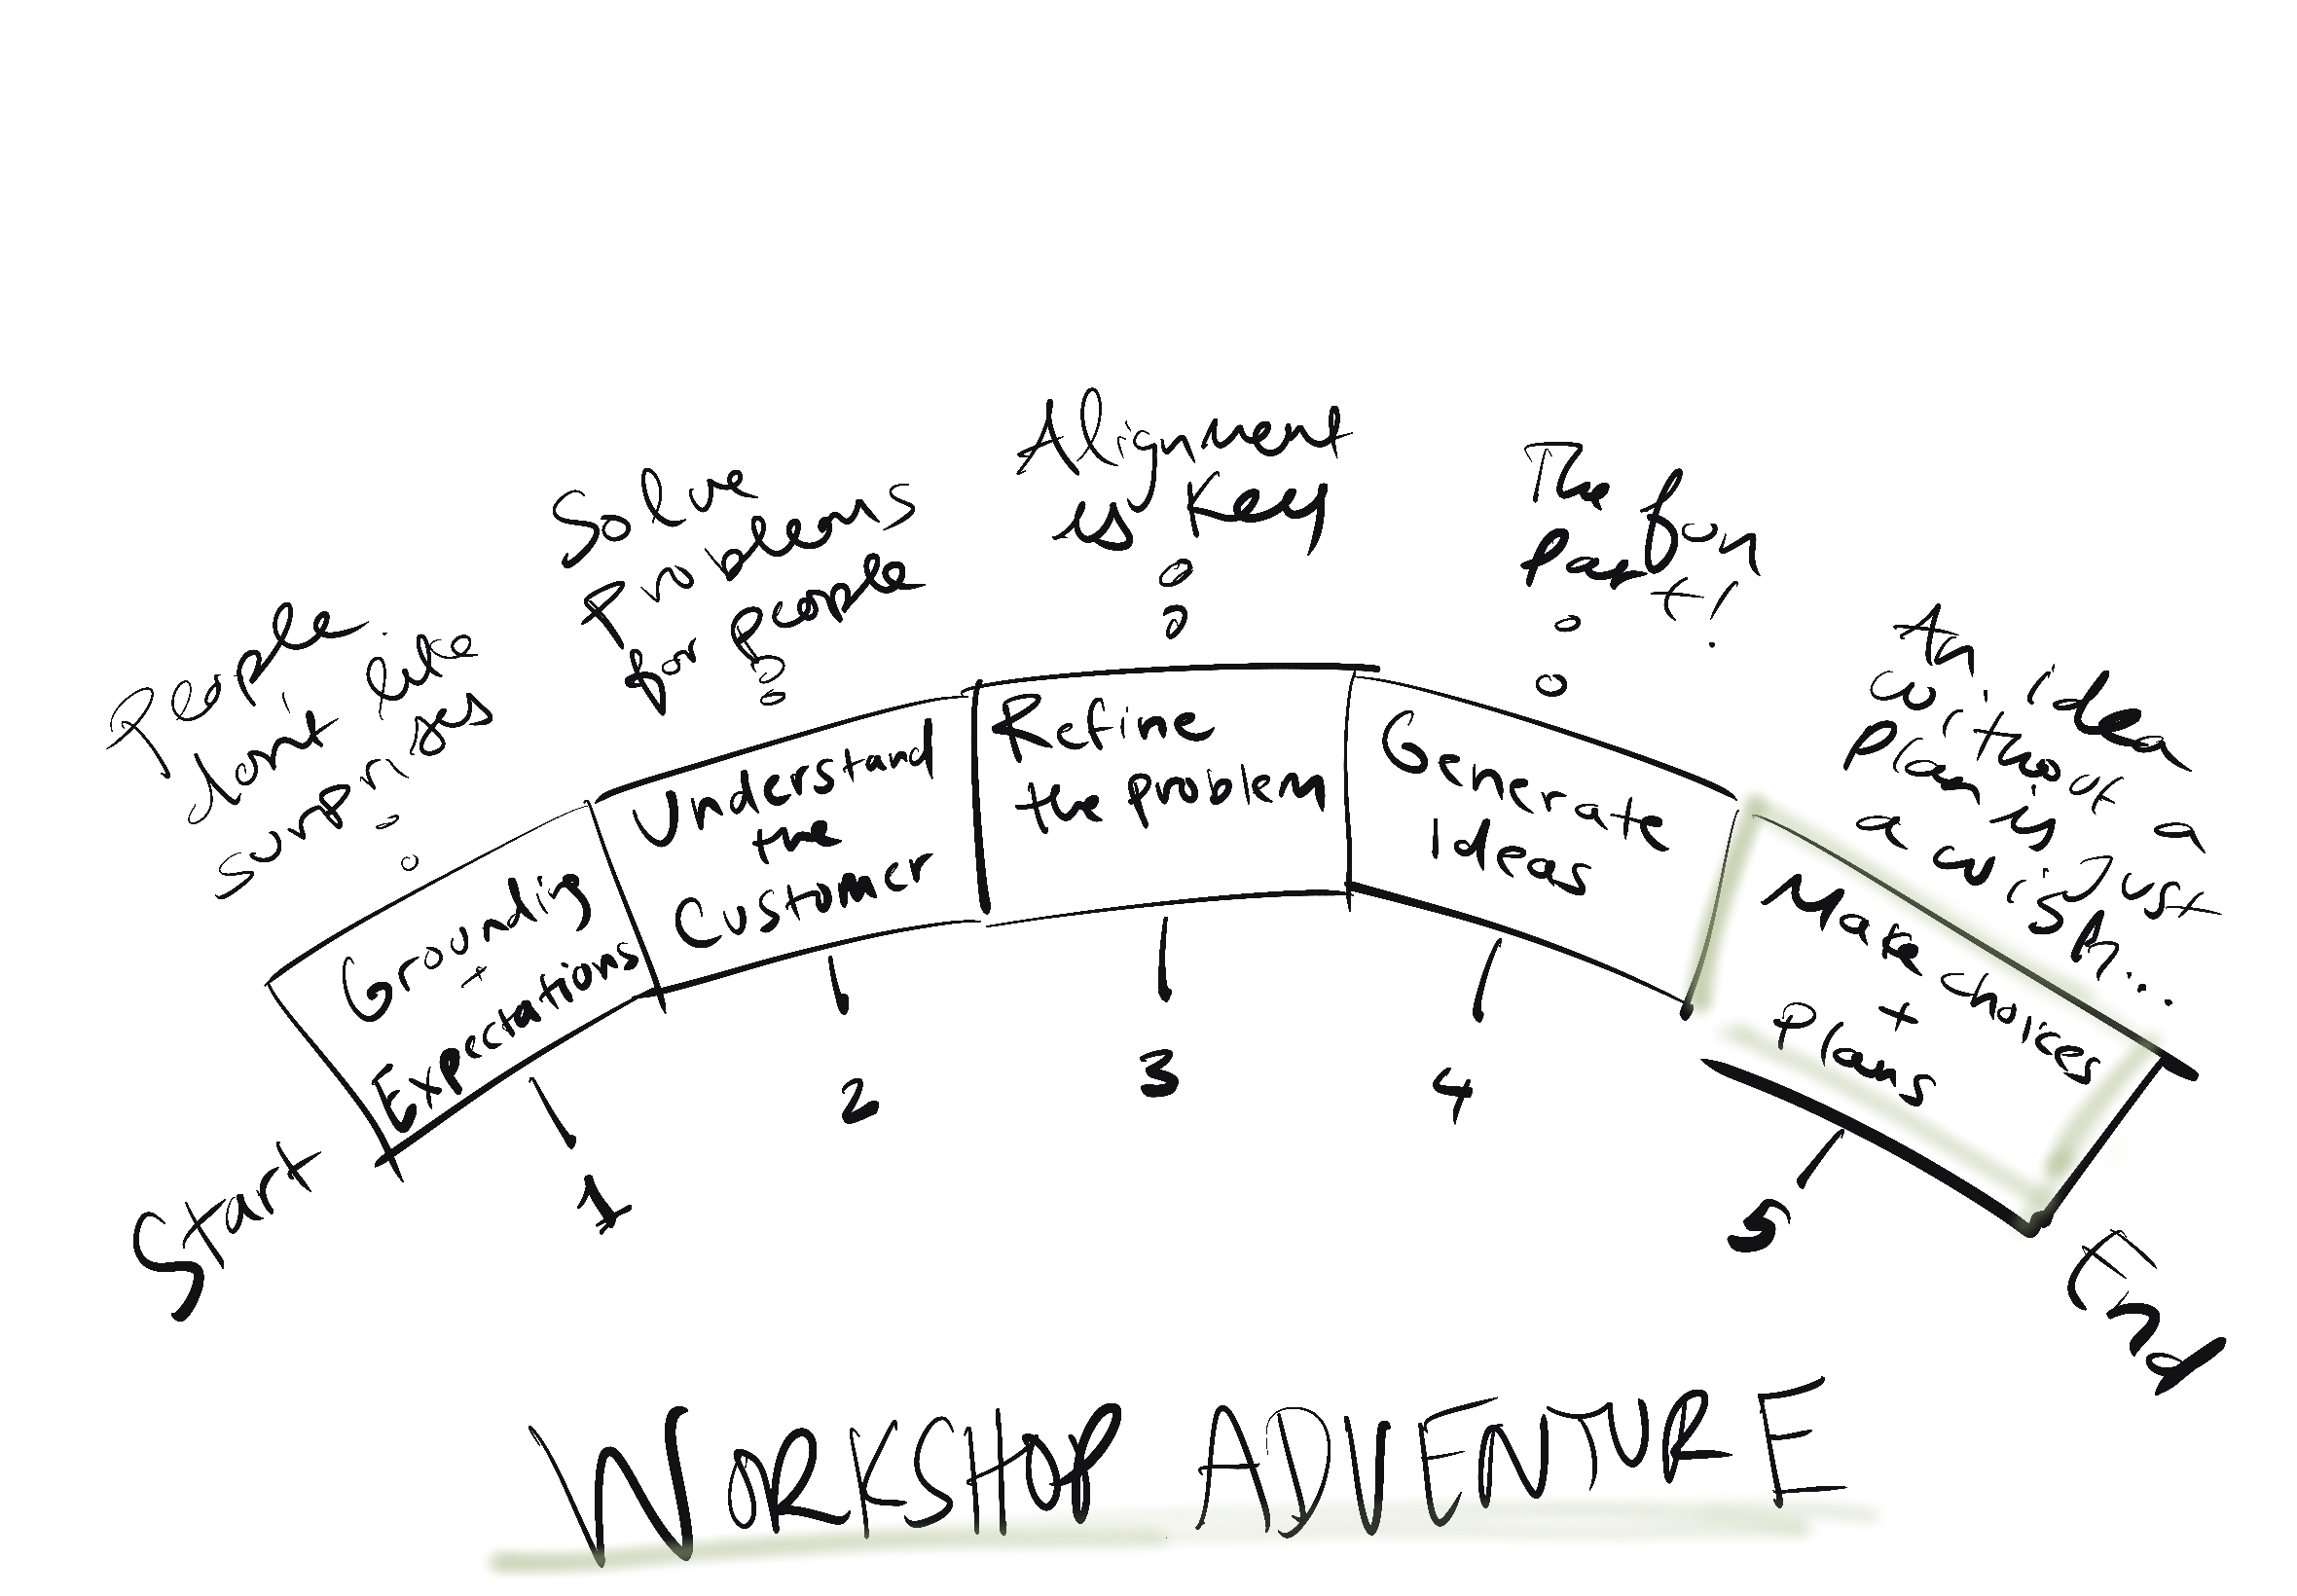 People
don't like
surprises
Solve
Problems
for people
Alignment
is Key
The fun
Part!
An idea
without a
Plan is Just
a wish...
Grounding
+
Expectations
Understand
the
Customer
Refine
the problem
Generate
Ideas
Make choices
+
Plans
Start
1
2
3
4
5
End
WORKSHOP ADVENTURE